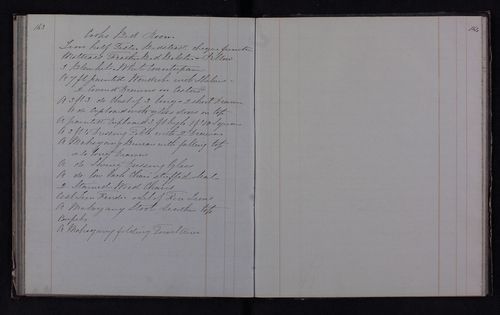 163
164
Cooks Bed Room
Iron half Tester Bedstead
Mattrass Feather Bed Bolster & Pillow
2 Blankets White Counterpane
A 7 ft painted Wardrobe with
& Drawers in Centre
A 3 ft 3 do Chest of 3 long & 2 short Drawers
& do Cupboard with doors on top
A painted Cupboard 3 ft high Square
A 3 ft Dressing Table with 2 Drawers
A Mahogany Bureau with falling top
& 4 long Drawers
A do Swing Dressing Glass
A do low back Chair stuffed Seat
2 Stained Wood Chairs
Cast Iron Fender & Set of Fire Irons
A Mahogany Stool Leather top
Carpets
A Mahogany folding Towel